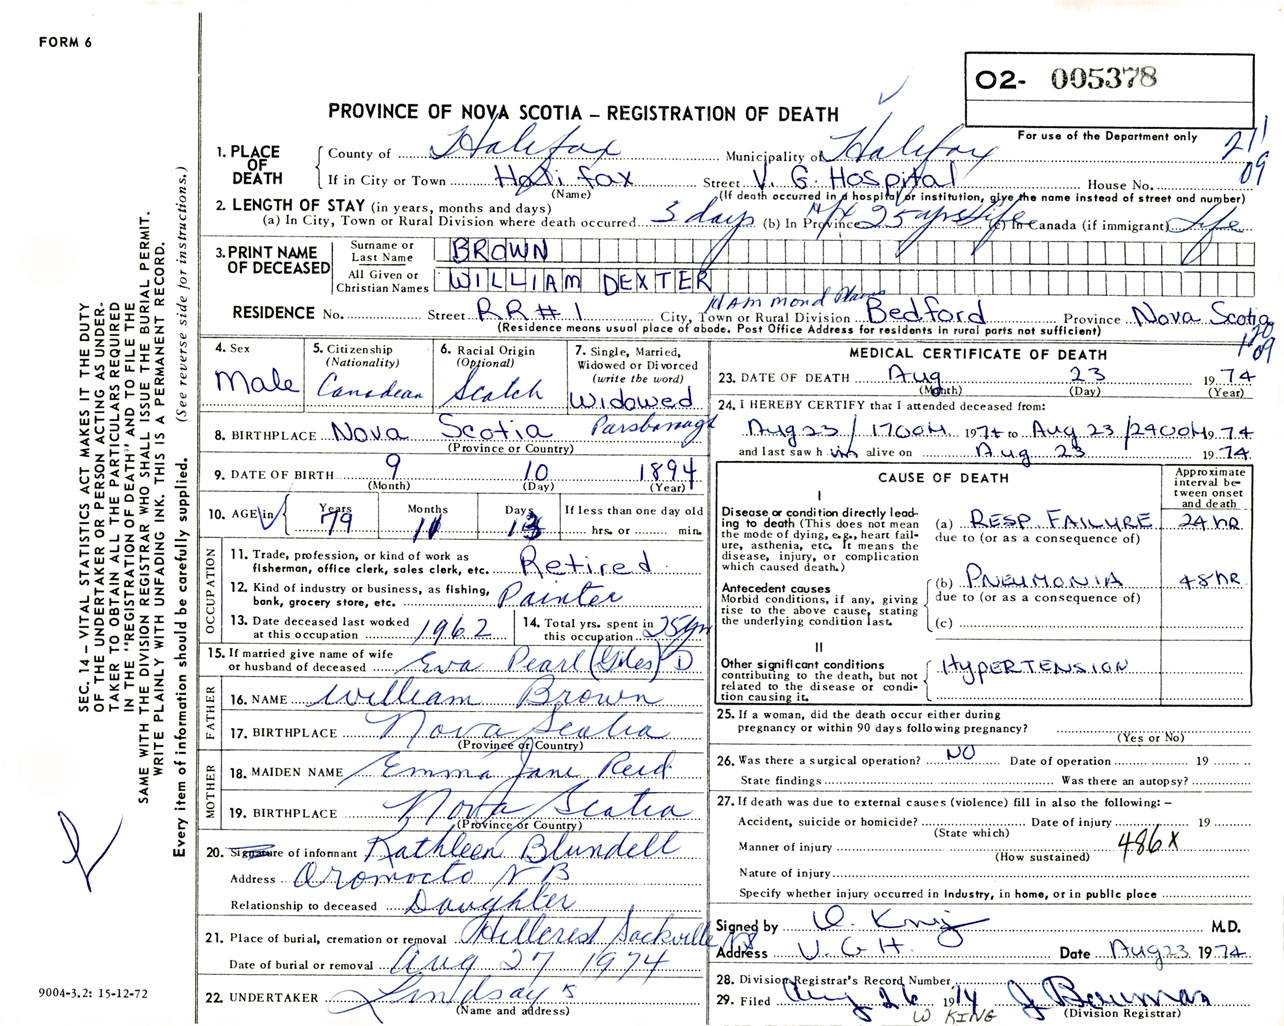 FORM 6
O2- 005378
PROVINCE OF NOVA SCOTIA – REGISTRATION OF DEATH
For use of the Department only
21
09
1. PLACE OF DEATH
County of Halifax Municipality of Halifax
If in City or Town Halifax Street V. G. Hospital House No.
(Name) (If death occurred in a hospital or institution, give the name instead of street and number)
2. LENGTH OF STAY (in years, months and days)
(a) In City, Town or Rural Division where death occurred 3 days (b) In Province life (c) In Canada (if immigrant) Life
3. PRINT NAME OF DECEASED
Surname or Last Name BROWN
All Given or Christian Names WILLIAM DEXTER
Hammond Plains
RESIDENCE No. Street RR#1 City, Town or Rural Division Bedford Province Nova Scotia
(Residence means usual place of abode. Post Office Address for residents in rural parts not sufficient)
20
09
4. Sex Male
5. Citizenship (Nationality) Canadian
6. Racial Origin (Optional) Scotch
7. Single, Married, Widowed or Divorced (write the word) Widowed
8. BIRTHPLACE Nova Scotia Parsborough
(Province or Country)
9. DATE OF BIRTH 9 10 1894
(Month) (Day) (Year)
10. AGE in Years 79 Months 11 Days 13 If less than one day old
hrs. or min.
OCCUPATION
11. Trade, profession, or kind of work as fisherman, office clerk, sales clerk, etc. Retired
12. Kind of industry or business, as fishing, bank, grocery store, etc. Painter
13. Date deceased last worked at this occupation 1962
14. Total yrs. spent in this occupation 25 yrs
15. If married give name of wife or husband of deceased Eva Pearl (Giles) D
FATHER
16. NAME William Brown
17. BIRTHPLACE Nova Scotia
(Province or Country)
MOTHER
18. MAIDEN NAME Emma Jane Reid
19. BIRTHPLACE Nova Scotia
(Province or Country)
20. Signature of informant Kathleen Blundell
Address Oromocto N B
Relationship to deceased Daughter
21. Place of burial, cremation or removal Hillcrest Sackville NS
Date of burial or removal Aug 27 1974
22. UNDERTAKER Lindsay's
(Name and address)
MEDICAL CERTIFICATE OF DEATH
23. DATE OF DEATH Aug 23 1974
(Month) (Day) (Year)
24. I HEREBY CERTIFY that I attended deceased from:
Aug 23 / 1700H 1974 to Aug 23 /2400H 1974
and last saw h im alive on Aug 23 1974
CAUSE OF DEATH
Approximate interval between onset and death
I
Disease or condition directly leading to death (This does not mean the mode of dying, e.g., heart failure, asthenia, etc. It means the disease, injury, or complication which caused death.)
(a) RESP. FAILURE 24 hR
due to (or as a consequence of)
Antecedent causes
Morbid conditions, if any, giving rise to the above cause, stating the underlying condition last.
(b) PNEUMONIA 48 hR
due to (or as a consequence of)
(c)
II
Other significant conditions contributing to the death, but not related to the disease or condition causing it.
HYPERTENSION
25. If a woman, did the death occur either during pregnancy or within 90 days following pregnancy?
(Yes or No)
26. Was there a surgical operation? NO Date of operation 19
State findings Was there an autopsy?
27. If death was due to external causes (violence) fill in also the following: –
Accident, suicide or homicide? Date of injury 19
(State which)
Manner of injury 486X
(How sustained)
Nature of injury
Specify whether injury occurred in industry, in home, or in public place
Signed by W. King M.D.
Address V.G.H. Date Aug 23 1974
28. Division Registrar's Record Number
29. Filed Aug 26 1974
(Division Registrar)
W. KING
SEC. 14 – VITAL STATISTICS ACT MAKES IT THE DUTY
OF THE UNDERTAKER OR PERSON ACTING AS UNDER-
TAKER TO OBTAIN ALL THE PARTICULARS REQUIRED
IN THE "REGISTRATION OF DEATH" AND TO FILE THE
SAME WITH THE DIVISION REGISTRAR WHO SHALL ISSUE THE BURIAL PERMIT.
WRITE PLAINLY WITH UNFADING INK. THIS IS A PERMANENT RECORD.
Every item of information should be carefully supplied. (See reverse side for instructions.)
9004-3.2: 15-12-72